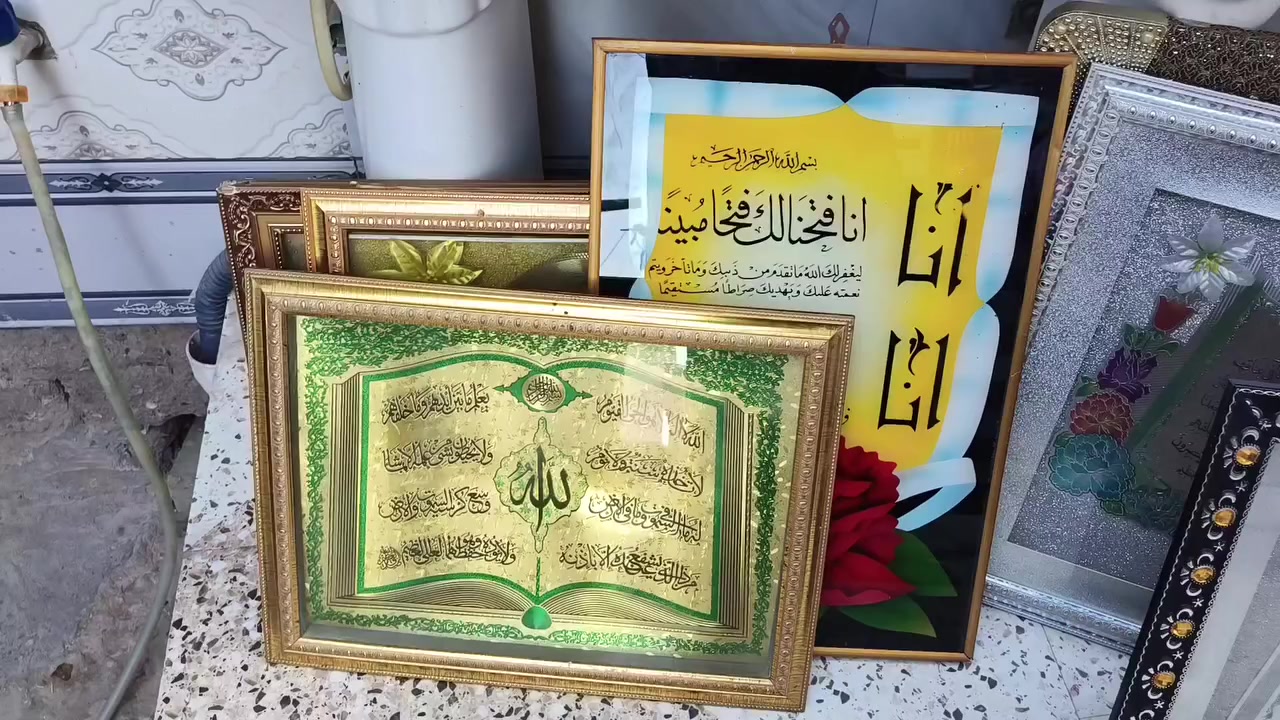 بسم الله الرحمن الرحيم
انا فتحنا لك فتحا مبينا
ليغفر لك الله ما تقدم من ذنبك وما تأخر ويتم
نعمته عليك ويهديك صراطا مستقيما
انا
انا
الله لا اله الا هو الحي القيوم
لا تأخذه سنة ولا نوم
له ما في السموات وما في الارض
من ذا الذي يشفع عنده الا باذنه
الله
يعلم ما بين ايديهم وما خلفهم
ولا يحيطون بشئ من علمه الا بما شاء
وسع كرسيه السموات والارض
ولا يؤده حفظهما وهو العلي العظيم